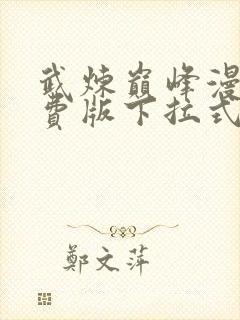 武炼巅峰漫
费版下拉式
鄭文萍